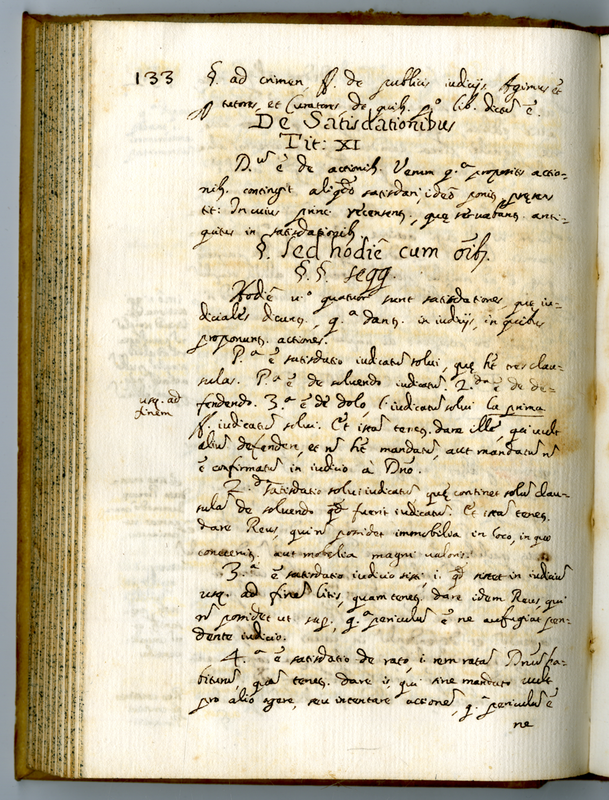 133
§. ad crimen ff. de publicis iudicijs. Agimus et
tutores, et Curatores de quib. p.º lib. dictũ ẽ.
De Satisdationibus
Tit: XI
D.ũ ẽ de actionib. Verum q.ª propositis actio=
nib. contingit satisdari, ideò ponit
tit: In cuius princ. recensent, quę servabant anti=
quitus in satisdationib.
§. Sed hodiè cum õib.
§. §. segg.
Hodiè v.º quatuor sunt satisdationes, que iu=
diciales dicunt, q.ª dant. in iudicijs, in quibus
proponunt. actiones.
P.ª ẽ satisdatio iudicatũ solui, quę ht̃ tres clau=
sulas. P.ª ẽ de soluendo iudicatũ. 2.da ẽ de de=
fendendo. 3.ª ẽ de dolo, iudicatũ solui la prima
usq. ad
finem
ff. iudicatũ solui. Et istã tenet. dare ille, qui vult
aliũ defendere, et ñ ht̃ mandatũ aut mandatũ ñ
ẽ confirmatũ in iudicio a Dño.
2.ª satisdatio solui iudicatũ quę continet solũ clau=
sulã de soluendo qd̃ fuerit iudicatũ. Et istã tenet.
dare Reus, qui ñ possidet immobilia in loco, in quo
conuenit. aut mobilia magni valoris.
3.ª ẽ satisdatio iudicio sisti i. qd̃ sistet in iudiciũ
usq. ad finẽ litis, quam tenet. dare idem Reus, qui
ñ possidet ut sup. q.ª periculũ ẽ ne aufugiat pen=
dente iudicio.
4.ª ẽ satisdatio de rato, i. rem ratã Dñũ ha=
biturũ, quã tenet. dare is, qui sine mandato vult
pro alio agere, seu intentare actionẽ, q.ª periculũ ẽ
ne